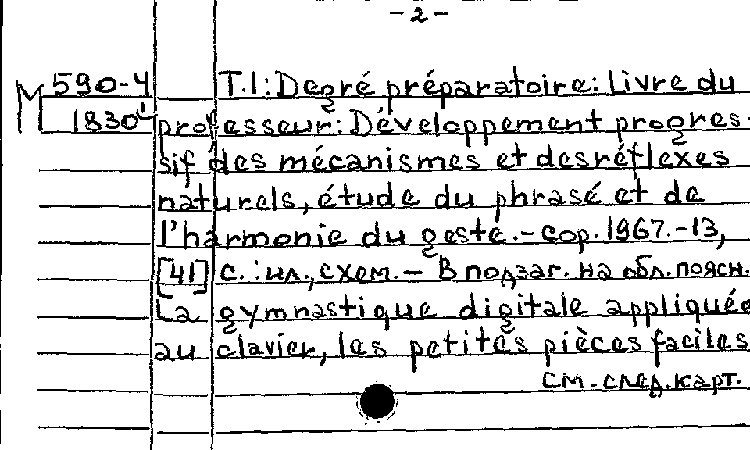 -2-
М 590-4
1830¹
T.1: Degré préparatoire: Livre du
professeur: Développement progres-
sif des mécanismes et des réflexes
naturels, étude du phrasé et de
l'harmonie du geste.-cop.1967.-13,
[41] с.: ил., схем. — В подзаг. на обл. поясн.
La gymnastique digitale appliquée
au clavier, les petites pièces faciles
см. след. карт.